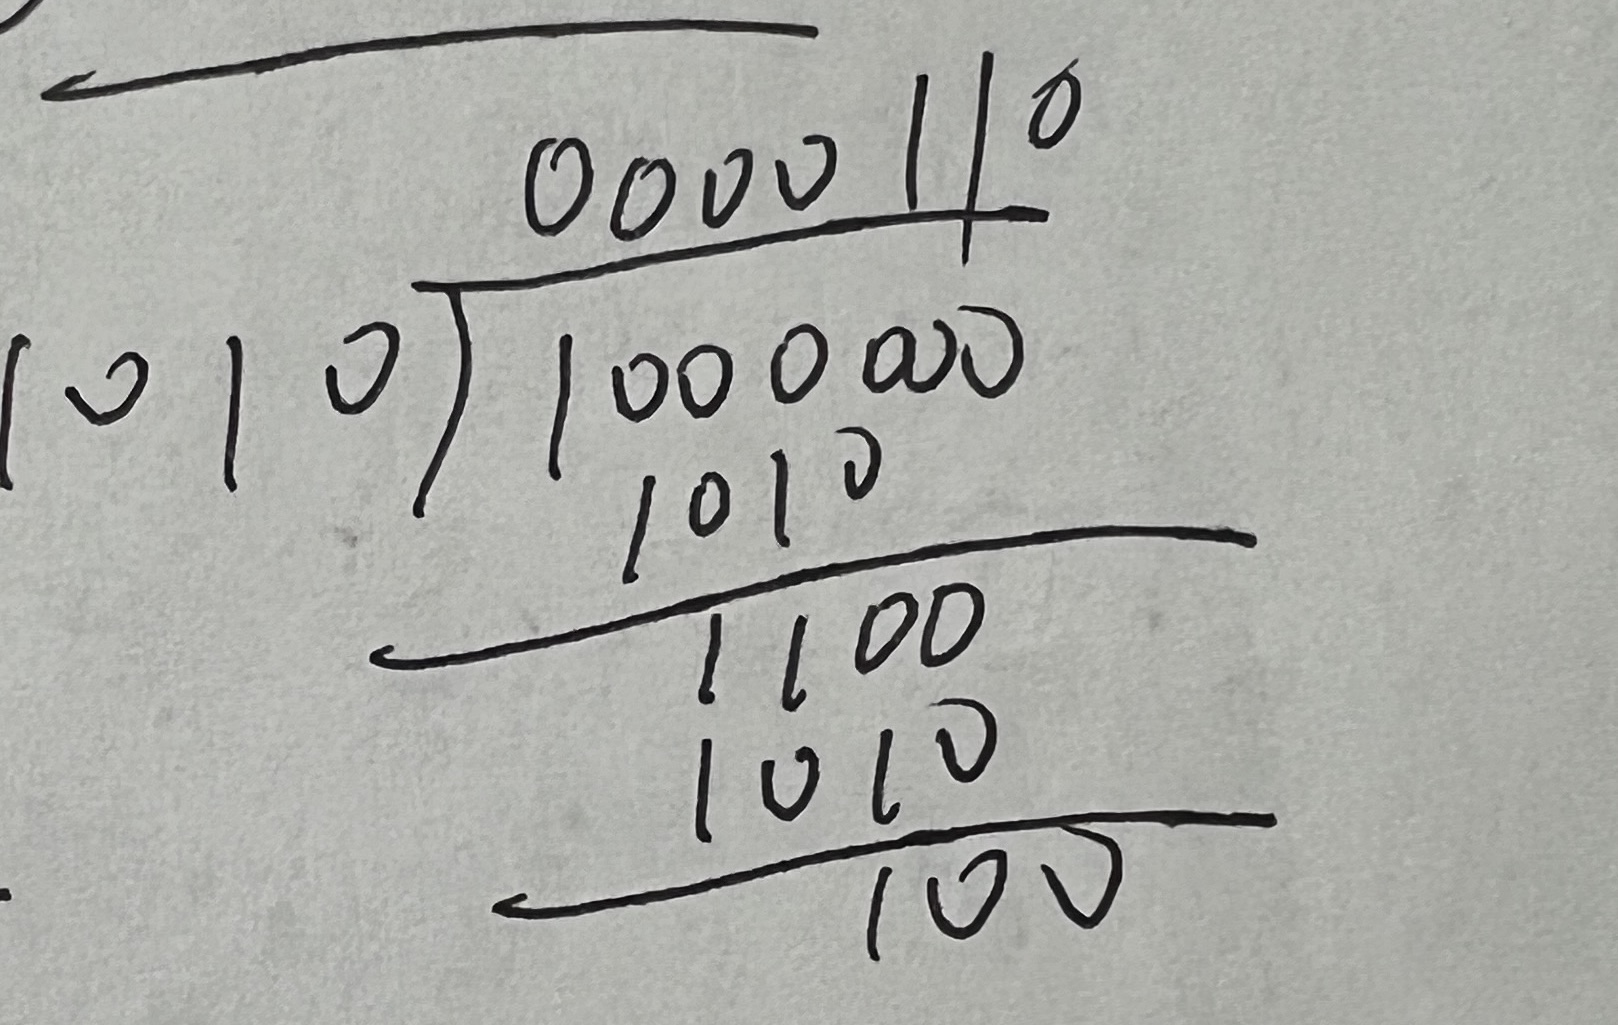 0000110
1010)1000000
1010
1100
1010
100